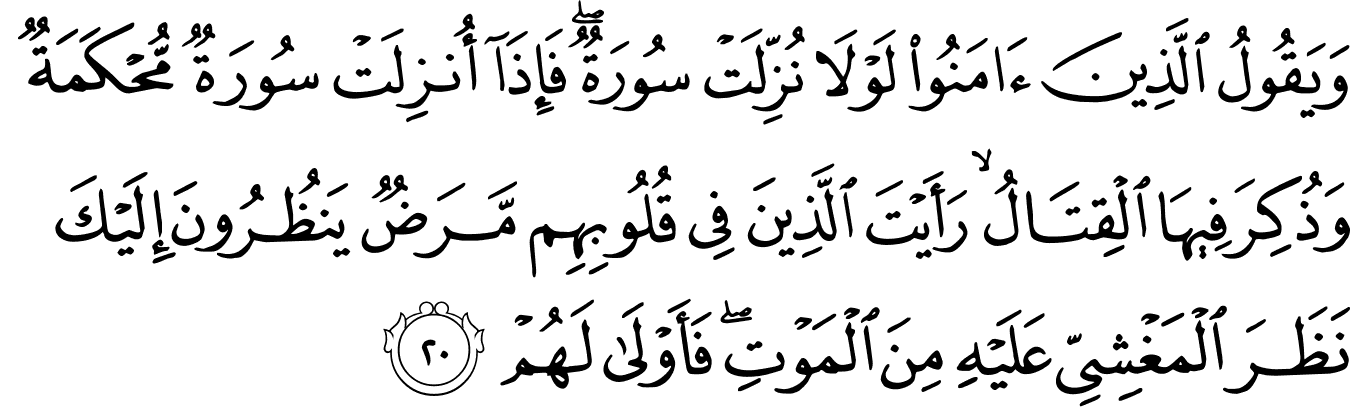 وَيَقُولُ ٱلَّذِينَ ءَامَنُوا۟ لَوْلَا نُزِّلَتْ سُورَةٌ ۖ فَإِذَآ أُنزِلَتْ سُورَةٌ مُّحْكَمَةٌ
وَذُكِرَ فِيهَا ٱلْقِتَالُ ۙ رَأَيْتَ ٱلَّذِينَ فِى قُلُوبِهِم مَّرَضٌ يَنظُرُونَ إِلَيْكَ
نَظَرَ ٱلْمَغْشِىِّ عَلَيْهِ مِنَ ٱلْمَوْتِ ۖ فَأَوْلَىٰ لَهُمْ ٢٠